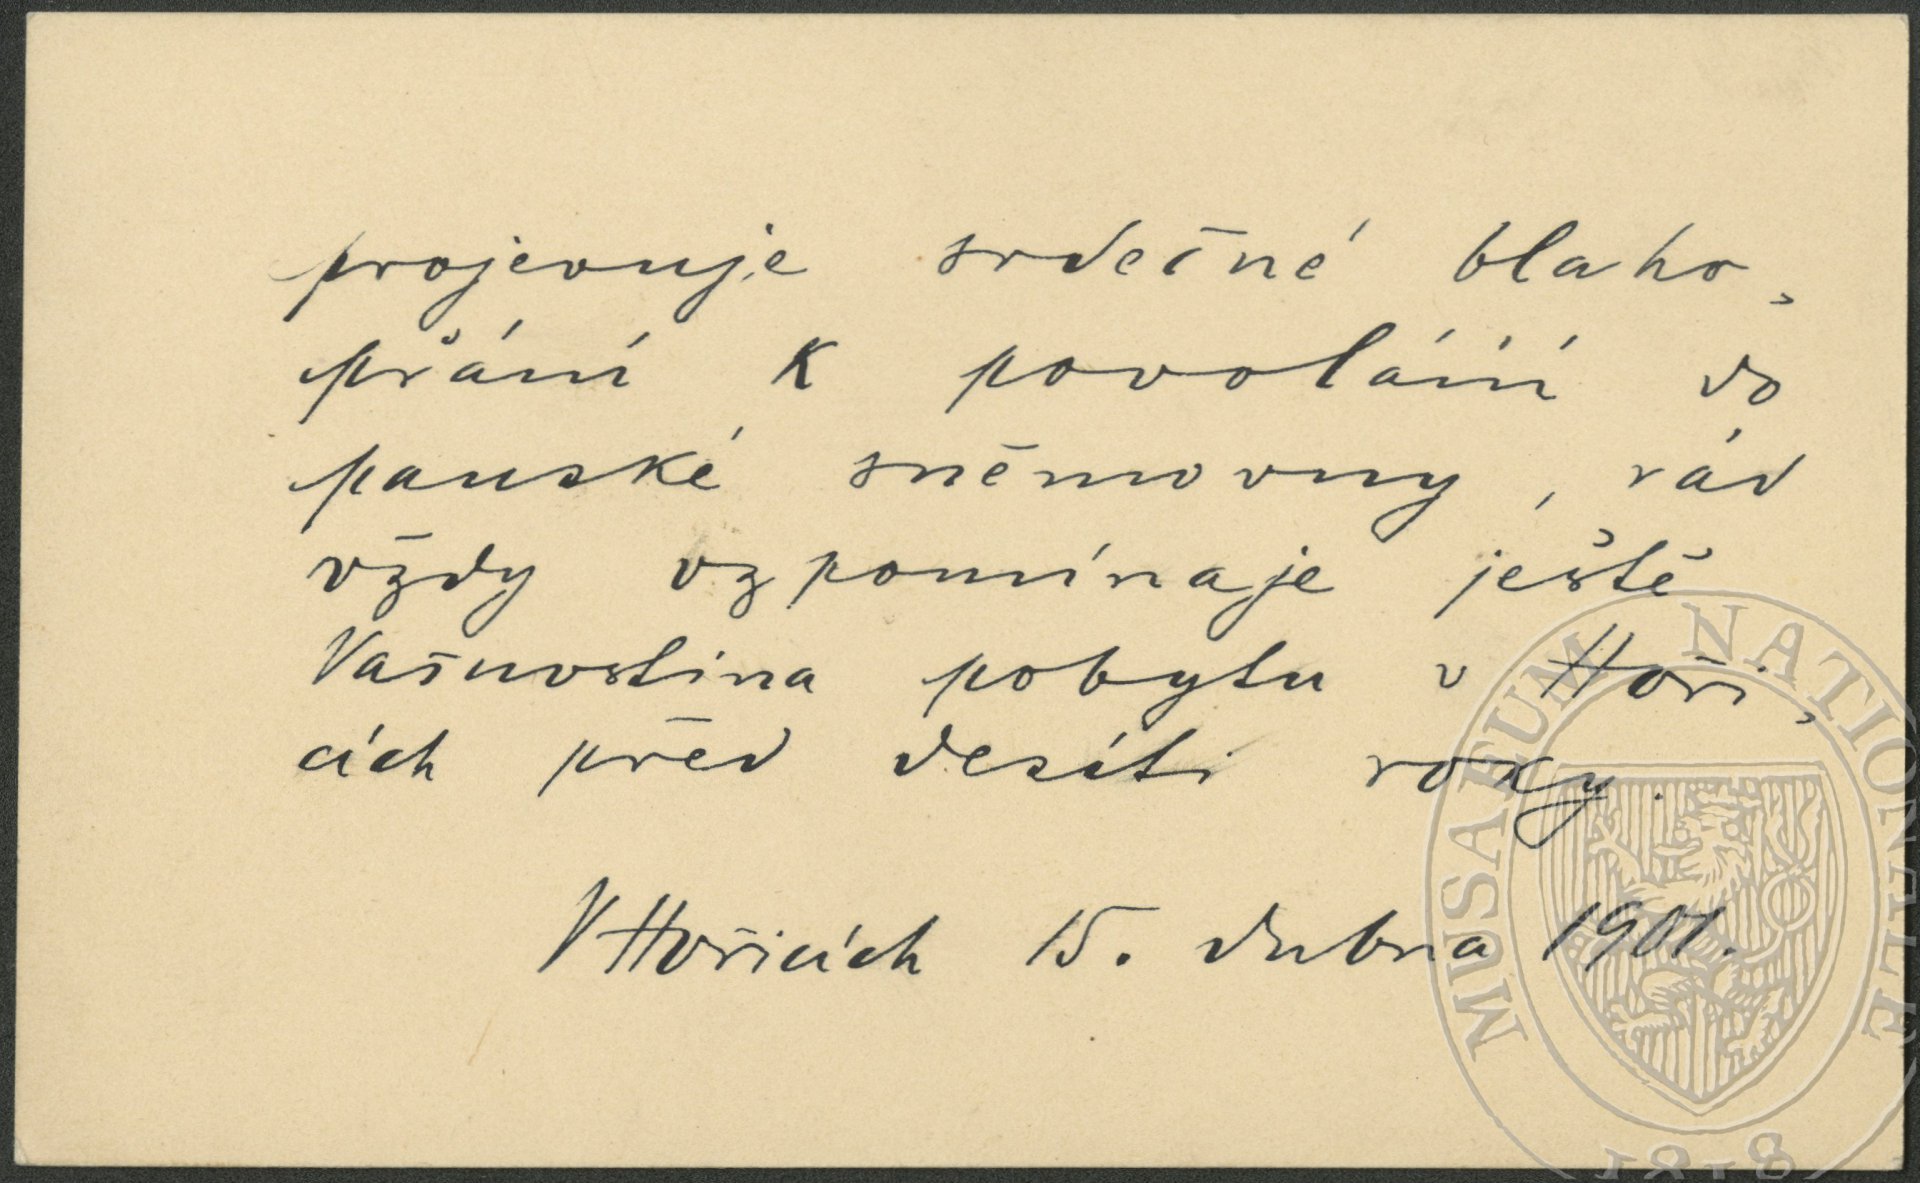 projevuje srdečné blaho-
přání k povolání do
panské sněmovny, rád
vždy vzpomínaje ještě
Vašnostina pobytu v Hoři-
cích před desíti roky.
V Hořicích 15. dubna 1901.
MUSAEUM NATIONALE
1818